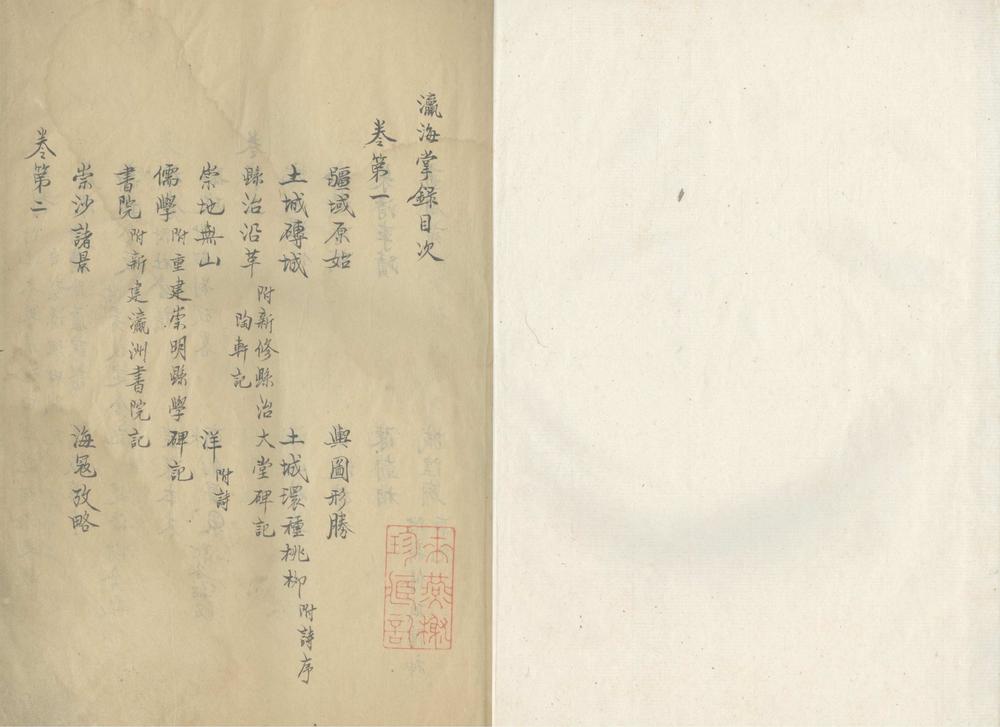 瀛海掌錄目次
卷第一
疆域原始 輿圖形勝
土城磚城 土城環種桃柳 附詩序
縣治沿革 附新修縣治大堂碑記
陶軒記
崇地無山 洋 附詩
儒學 附重建崇明縣學碑記
書院 附新建瀛洲書院記
崇沙諸景 海寇攷略
卷第二